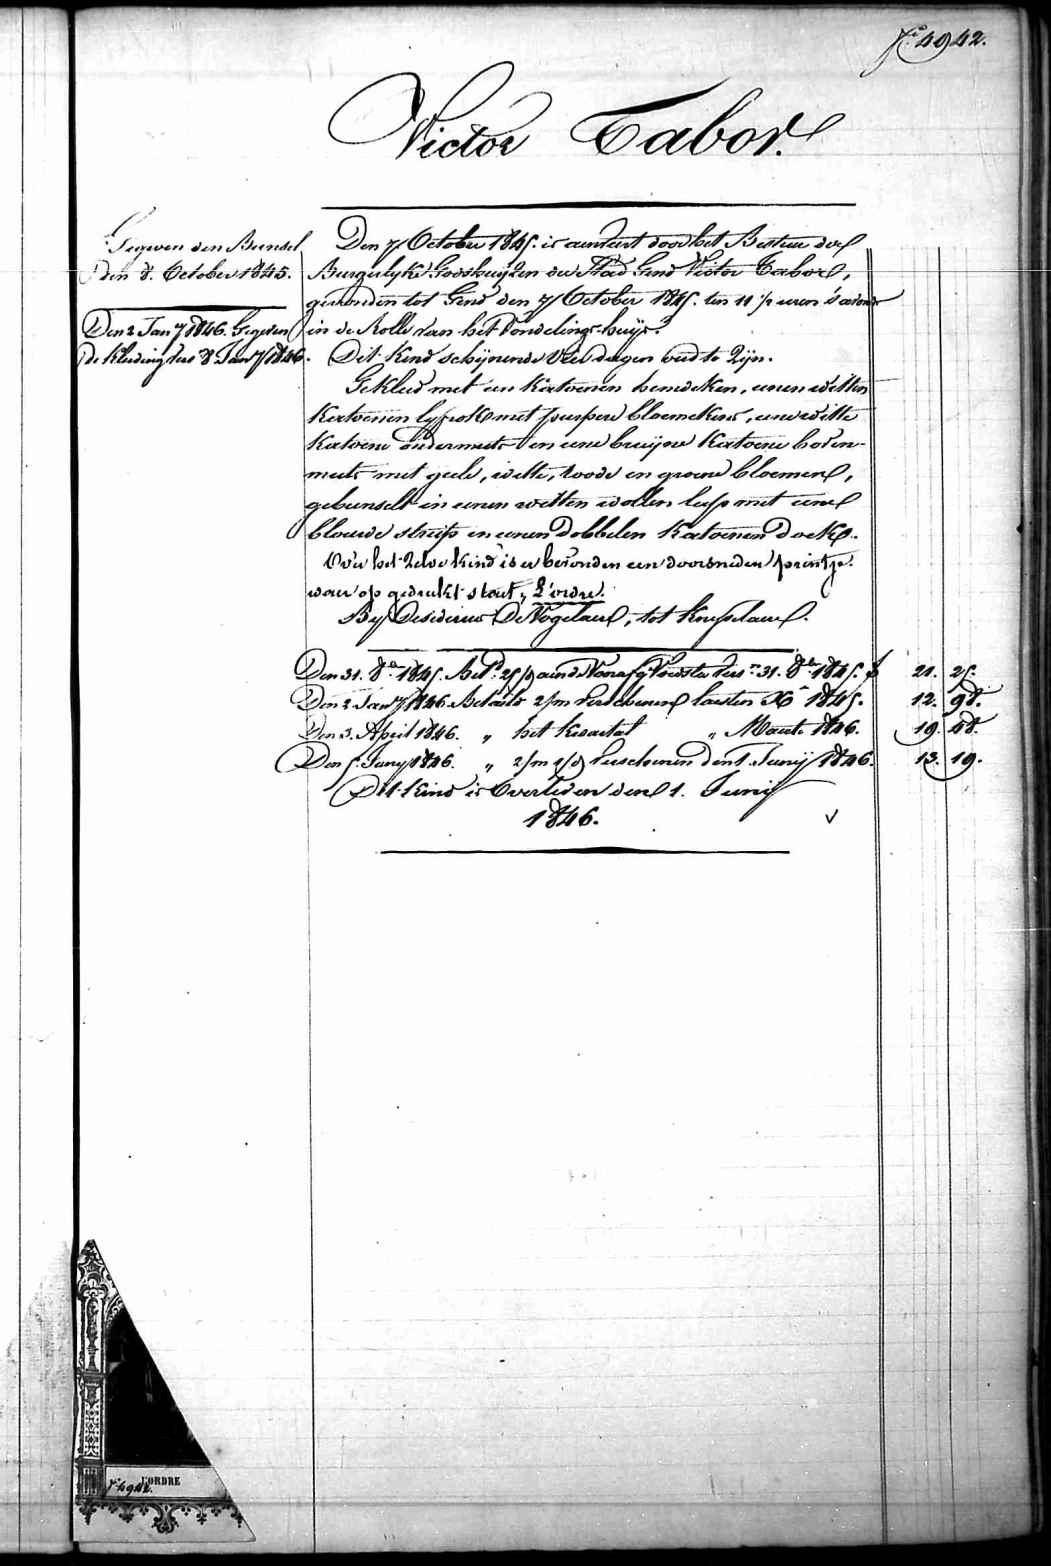 f° 4942.
Victor Tabor.
Gegeven den Bundsel
den 8. October 1845.
Den 2 Jany 1846. Gegeven
de kleeding ters 8 Jany 1846.
Den 7 October 1845. is aenveirt door het Bestier der
Burgerlyke Godshuyzen der Stad Gend Victor Tabor,
gevonden tot Gend den 7 October 1845. ten 11 ½ uren s'avonds
in de Rolle van het Vondelings-huys.
Dit kind schijnende dagen oud te zijn.
Gekleed met een Katoenen hemdeken, eenen witten
Katoenen lyfrok met purpere bloemekens, eene witte
Katoene ondermuts en eene bruijne Katoene boven-
muts met geele, witte, roode en groene bloemen,
gebunselt in eenen witten wollen lap met eene
blauwe streep en eenen dobbelen Katoenen doek.
Over het zelve kind is er bevonden een doorsneden printje.
waer op gedrukt staet „L'ordre.
By Desiderius De Vogelaere, tot Knesselaere.
Den 31. 8bre 1845. Bet. 25/d aende Voorsz Voedster ters 31. 8bre 1845. f 21. 25.
Den 2 Jany 1846. Betaelt 2/m verschenen laesten Xbre 1845. 12. 98.
Den 3. April 1846. „ het kwartael „ Maerte 1846. 19. 48.
Den 5. Juny 1846. „ 2/m 1/d verschenen den 1. Junij 1846. 13. 19.
Dit kind is overleden den 1. Junij
1846.
f° 4942.
L'ORDRE